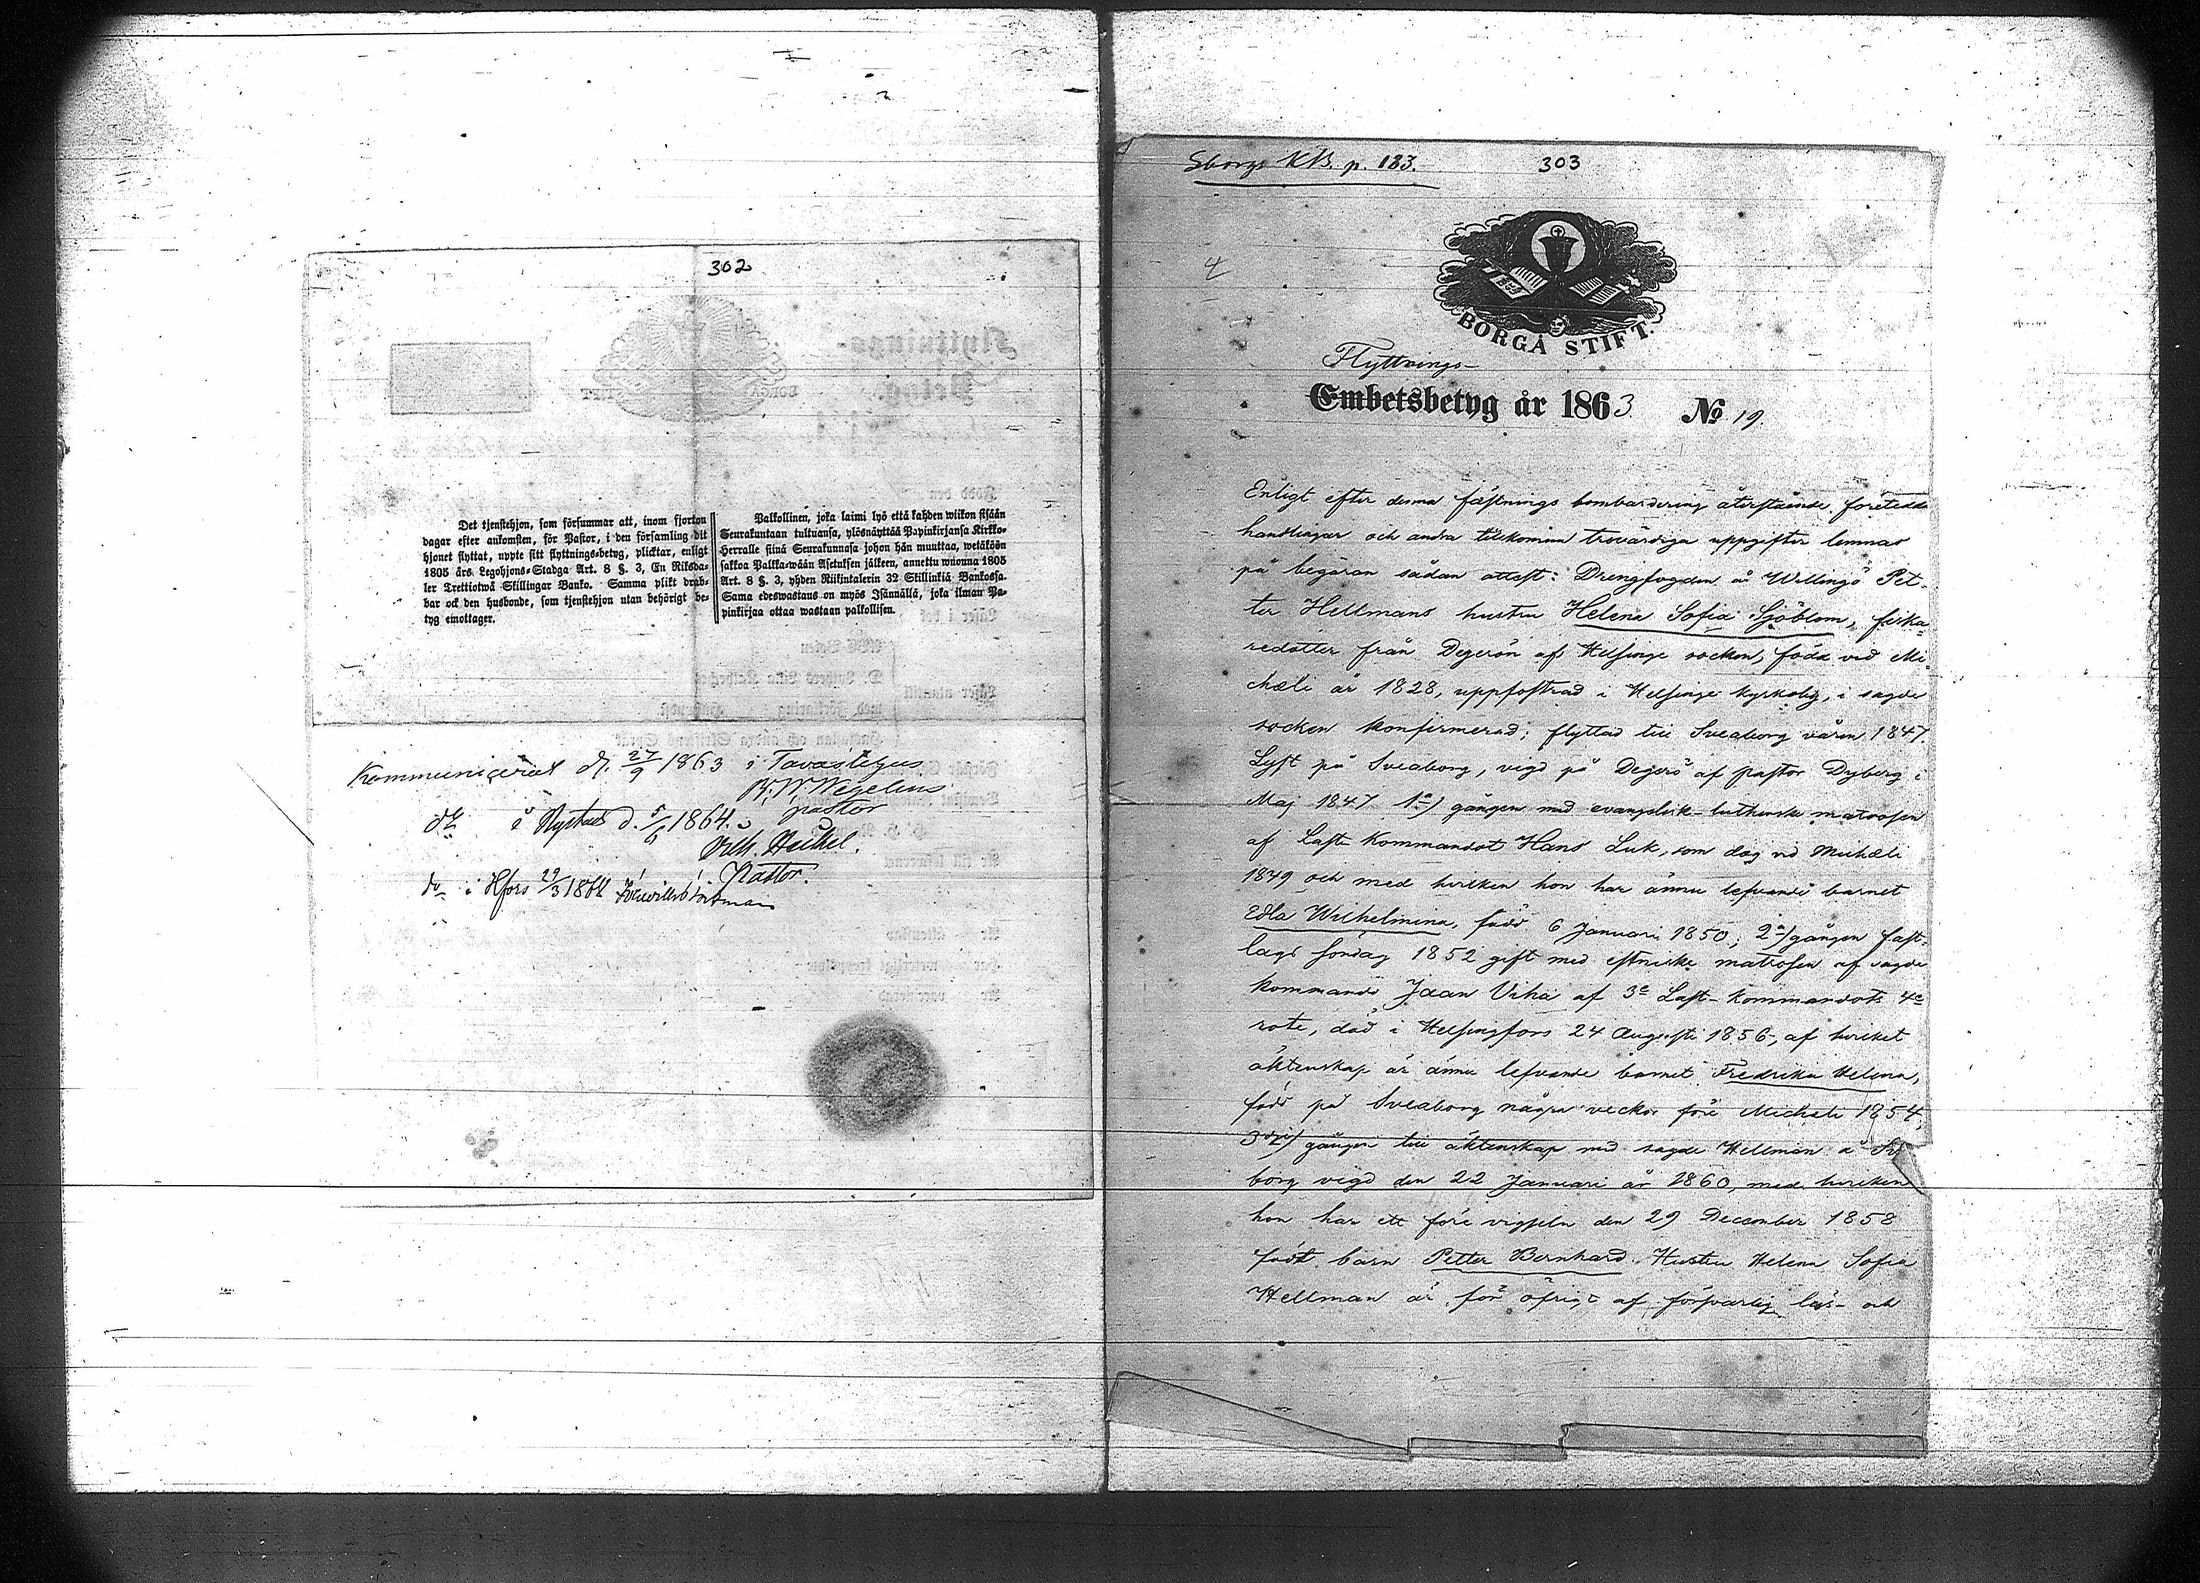 302
Det tjenstehjon, som försummar att, inom fjorton
dagar efter ankomsten, för Pastor, i den församling dit
hjonet flyttat, uppte sitt flyttnings-betyg, plicktar, enligt
1805 års Legohjons-Stadga Art. 8 §. 3, En Riksda-
ler Trettiotwå Skillingar Banko. Samma plikt drab-
bar ock den husbonde, som tjenstehjon utan behörigt be-
tyg emottager.
Palkollinen, joka laimi lyö että kahden wiikon sisään
Seurakuntaan tultuansa, ylösnäyttää Papinkirjansa Kirkko-
Herralle siinä Seurakunnasa johon hän muuttaa, wetäköön
sakkoa Palkka-wään Asetuksen jälkeen, annettu wuonna 1805
Art. 8 §. 3, yhden Riikintalerin 32 Skillinkiä Bankossa.
Sama edeswastaus on myös Isännällä, joka ilman Pa-
pinkirjaa ottaa wastaan palkollisen.
Kommunicerat d. 27/9 1863 i Tavastehus
Wegelius
pastor
i Nystad d. 5/6 1864.
Heikel.
Pastor.
do i Hfors 29/3 18
Sborgs KB. p. 183.
303
4
BORGÅ STIFT.
Flyttnings-
Embetsbetyg år 1863 No 19.
Enligt efter denna fästnings bombardering återstående företedda
handlingar och andra trovärdiga uppgifter lemnas
på begäran sådan attest: Drengfogden å Willingö Pet-
ter Hellmans hustru Helena Sofia Sjöblom, fiska-
redotter från Degerön af Helsinge socken, född vid Mi-
chæli år 1828, uppfostrad i Helsinge kyrkoby, i sagde
socken konfirmerad; flyttad till Sveaborg våren 1847.
Lyst på Sveaborg, vigd på Degerö af pastor Dyberg i
Maj 1847 1a) gången med evangelisk-lutherske matrosen
af Last Kommandot Hans Luk, som dog vid Michæli
1849 och med hvilken hon har ännu lefvande barnet
Edla Wilhelmina, född 6 Januari 1850; 2a) gången fast-
lags söndag 1852 gift med estniske matrosen af sagde
kommando Jaan Viha af 3e Last-Kommandots 4e
rote, död i Helsingfors 24 Augusti 1856, af hvilket
äktenskap är ännu lefvande barnet Fredrika Helena,
född på Sveaborg några veckor före Michæli 1854;
3dje) gången till äktenskap med sagde Hellman å Sv
borg vigd den 22 Januari år 1860, med hvilken
hon har ett före vigseln den 29 December 1858
födt barn Petter Bernhard. Hustru Helena Sofia
Hellman är för öfrigt af försvarlig läs- och